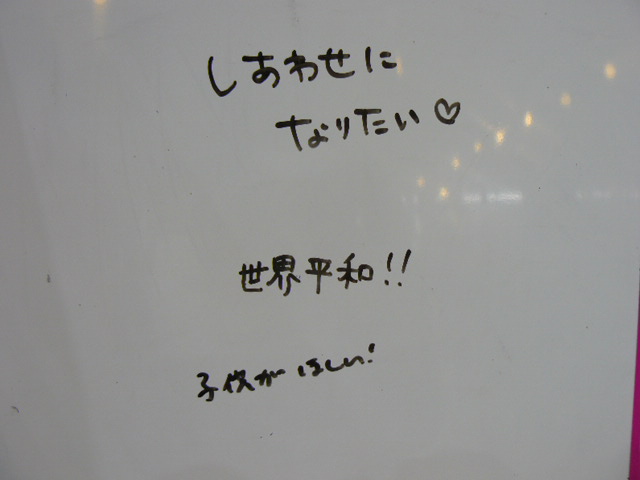 しあわせに
なりたい♡
世界平和!!
子供がほしい!